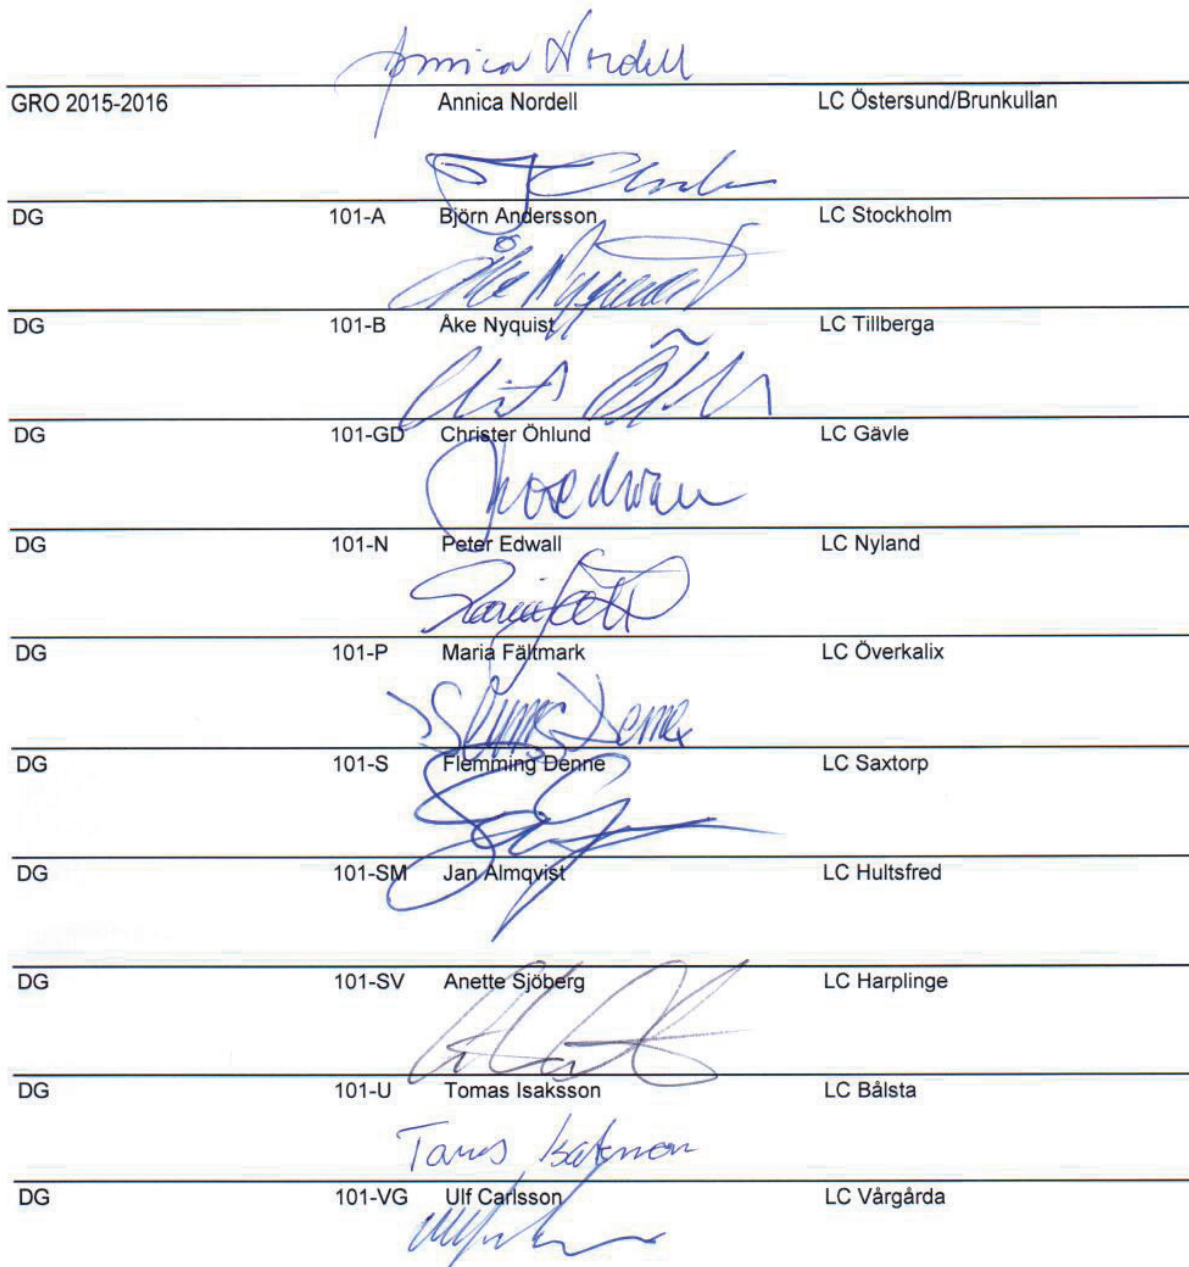 Annica Nordell
GRO 2015-2016 Annica Nordell LC Östersund/Brunkullan
DG 101-A Björn Andersson LC Stockholm
Åke Nyquist
DG 101-B Åke Nyquist LC Tillberga
DG 101-GD Christer Öhlund LC Gävle
DG 101-N Peter Edwall LC Nyland
DG 101-P Maria Fältmark LC Överkalix
DG 101-S Flemming Denne LC Saxtorp
DG 101-SM Jan Almqvist LC Hultsfred
DG 101-SV Anette Sjöberg LC Harplinge
DG 101-U Tomas Isaksson LC Bålsta
DG 101-VG Ulf Carlsson LC Vårgårda